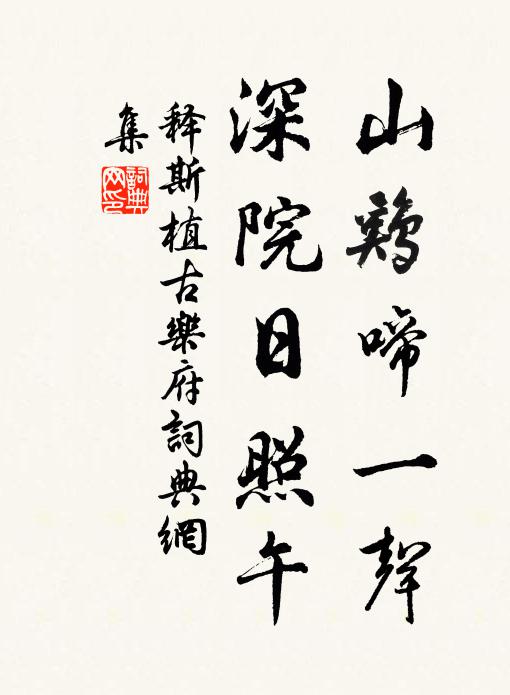 山鷄啼一聲
深院日照午
释斯植古樂府詞典網
集
詞典网印